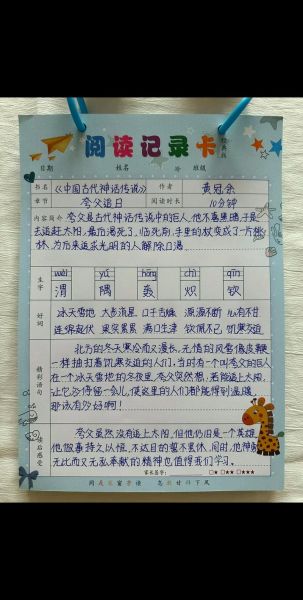 阅读记录卡
日期 姓名 班级
书名 《中国古代神话传说》 作者 黄冠余
章节 夸父追日 阅读时长 10分钟
内容简介 夸父是古代神话传说中的巨人,他不喜黑暗,于是
去追赶太阳,最后渴死了。临死刻,手里的杖变成了一片桃
林,为后来追求光明的人解除口渴。
生字 wèi yú hōng chì qīn
渭 隅 轰 炽 钦
好词 冰天雪地 大步流星 口干舌燥 源源不断
连绵起伏 果实累累 满口生津 钦佩不已 饥寒交迫
精彩语句 北方的冬天寒冷而又漫长,无情的风雪像皮鞭
一样抽打着饥寒交迫的人们。当时有一个叫夸父的巨人
在一个冰天雪地的冬夜里,夸父突然想:若能追上太阳,
让它多停留一会儿,使这里的人们都能得到温暖,
那该有多好啊!
读后感受 夸父虽然没有追上太阳,但他仍旧是一个英雄
他做事持之以恒,不达目的誓不罢休,同时,他神勇
无比而又无私奉献的精神也值得我们学习。
家长签字: □★ □★★ □★★★